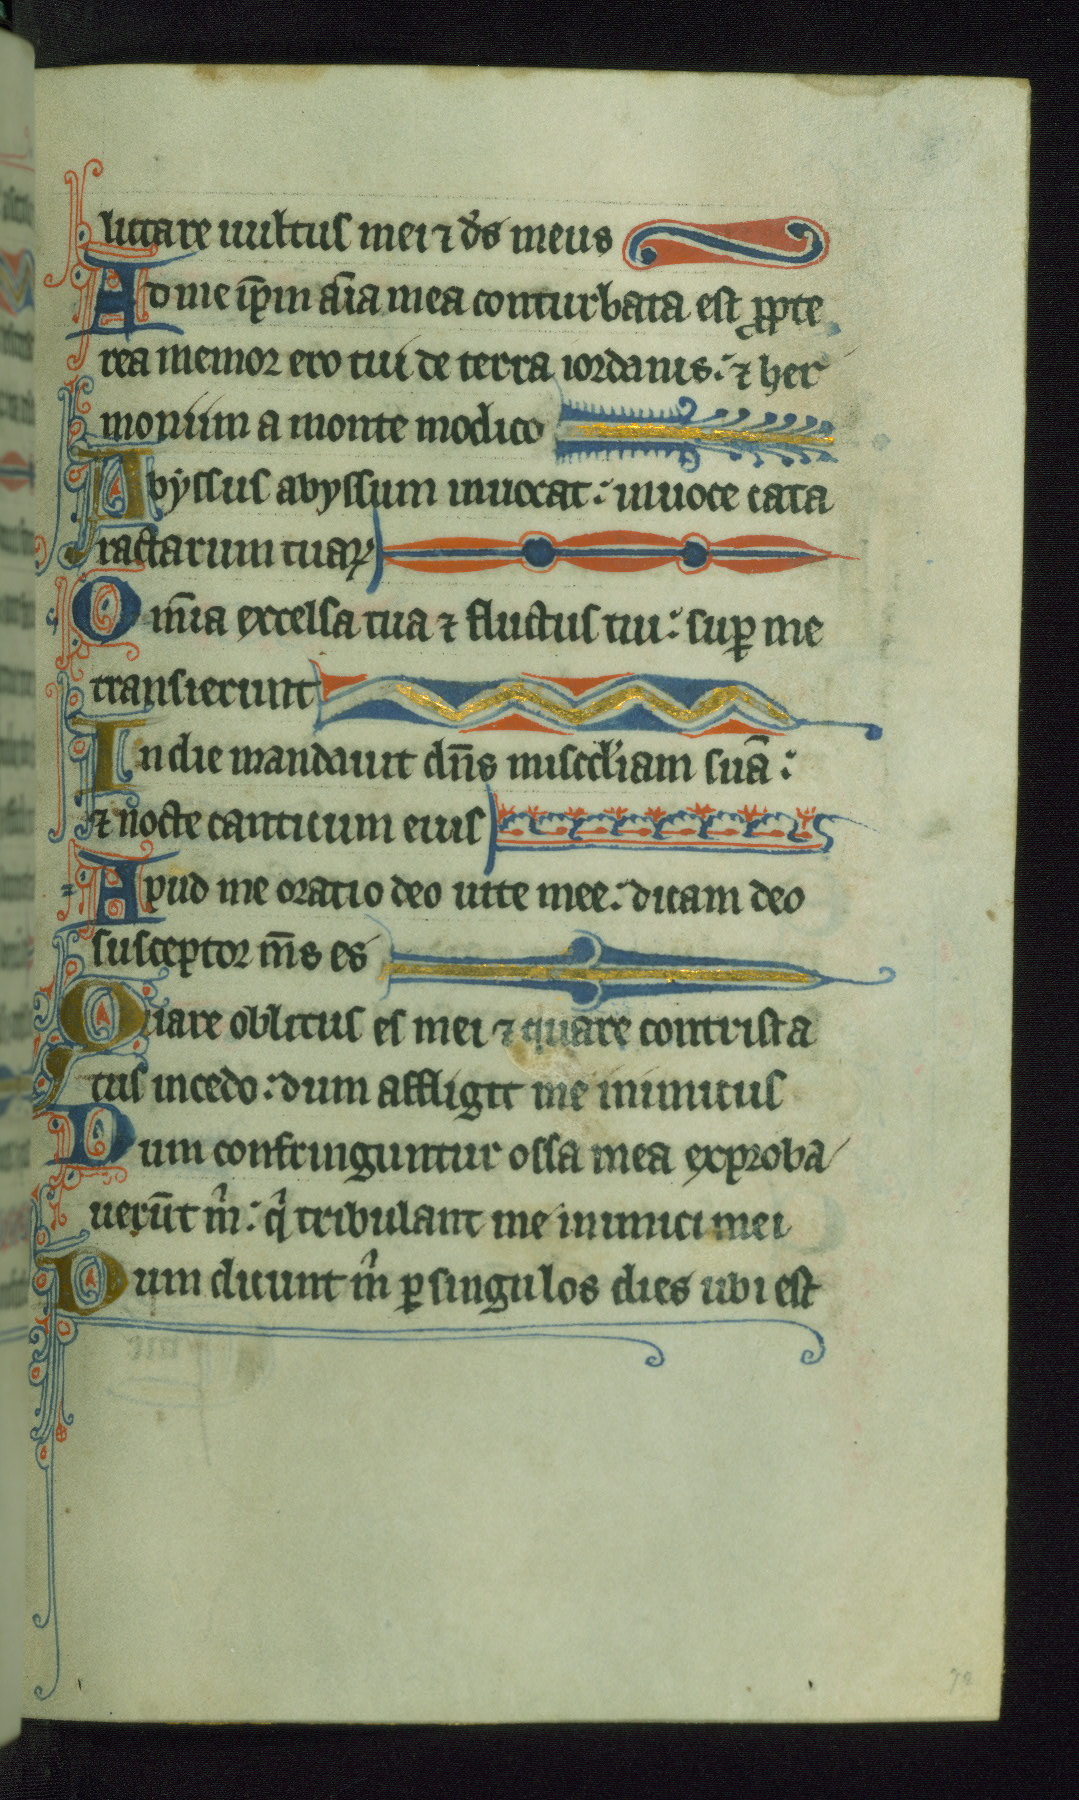 lutare uultus mei ⁊ ds̄ meus
Ad me ip̄m aīa mea conturbata est ꝓpte
rea memor ero tui de terra iordanis: ⁊ her
moniim a monte modico
Abyssus abyssum inuocat: inuoce cata
ractarum tuaꝝ
Om̄ia excelsa tua ⁊ fluctus tui: sup̄ me
transierunt
In die mandauit dn̄s misc̄diam suā:
⁊ nocte canticum eius
Apud me oratio deo uite mee: dicam deo
susceptor m̄s es
Quare oblitus es mei ⁊ quare contrista
tus incedo: dum affligit me inimicus
Dum confringuntur ossa mea exproba
uerūt m̄: q̄ tribulant me inimici mei
Dum dicunt m̄ ꝑ singulos dies ubi est